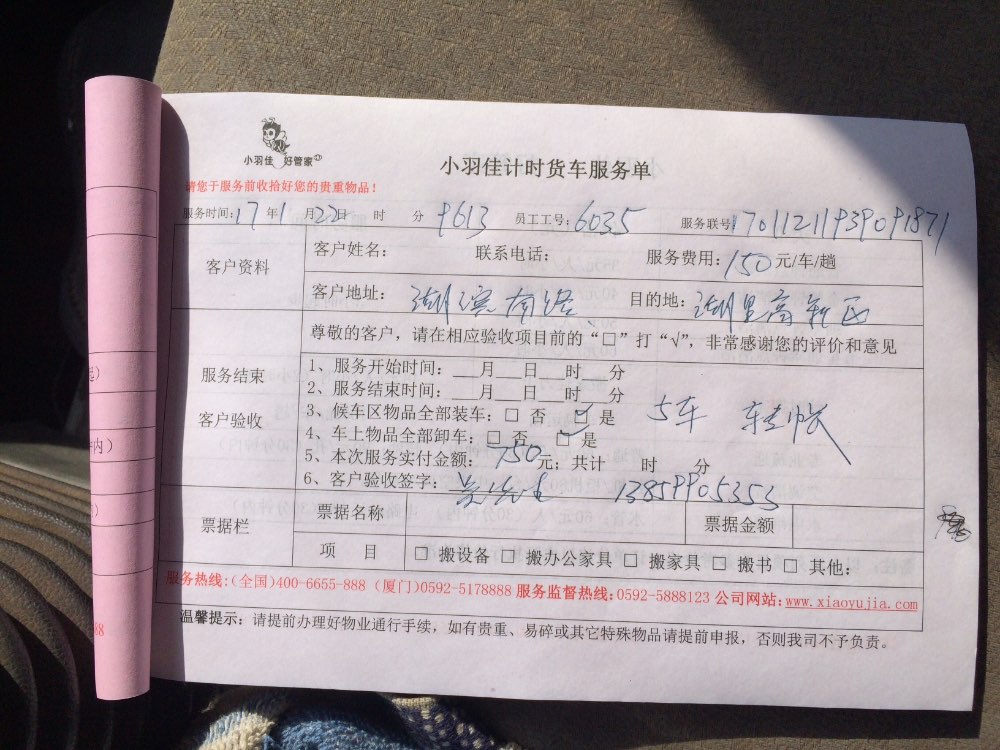 小羽佳 好管家
小羽佳计时货车服务单
请您于服务前收拾好您的贵重物品！
服务时间：17年1月22日 时 分 9613 员工工号：6035 服务联号17011211939091871
客户资料
客户姓名： 联系电话： 服务费用：150元/车/趟
客户地址：湖滨南路 目的地：湖里高新区
尊敬的客户，请在相应验收项目前的“□”打“√”，非常感谢您的评价和意见
服务结束
客户验收
1、服务开始时间：___月___日___时___分
2、服务结束时间：___月___日___时___分
3、候车区物品全部装车：□ 否 ☑ 是 5车
4、车上物品全部卸车：□ 否 ☑ 是
5、本次服务实付金额：750元；共计 时 分
6、客户验收签字：吴先生 13859905353
票据栏
票据名称 票据金额
项 目 □ 搬设备 □ 搬办公家具 □ 搬家具 □ 搬书 □ 其他：
服务热线:(全国)400-6655-888 (厦门)0592-5178888 服务监督热线：0592-5888123 公司网站：www.xiaoyujia.com
温馨提示：请提前办理好物业通行手续，如有贵重、易碎或其它特殊物品请提前申报，否则我司不予负责。
内）
88